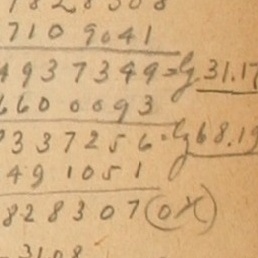 7109041
4937349=lg 31.17
660 0093
9337256=lg 68.19
49 1051
828307(OK)